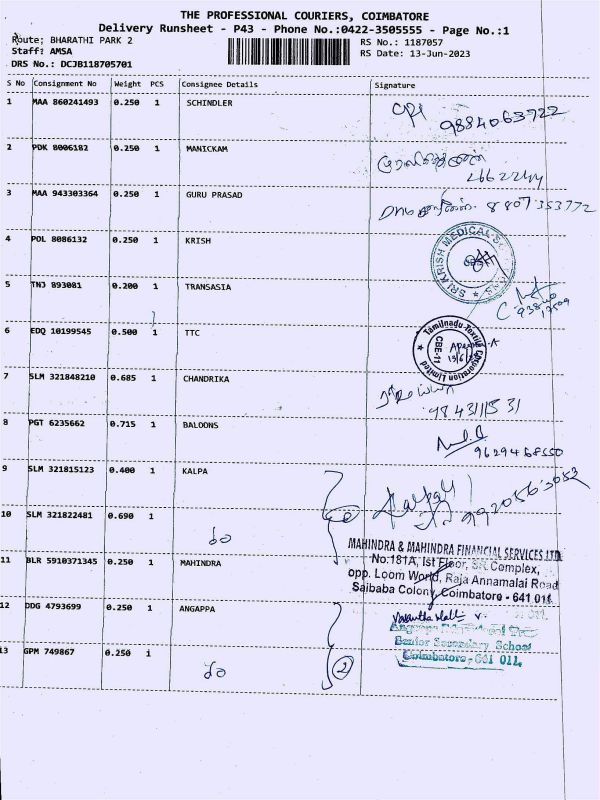 THE PROFESSIONAL COURIERS, COIMBATORE
Delivery Runsheet - P43 - Phone No.:0422-3505555 - Page No.:1
Route; BHARATHI PARK 2
RS No.: 1187057
Staff: AMSA
RS Date: 13-Jun-2023
DRS No.: DCJB118705701
S No Consignment No Weight PCS Consignee Details Signature
1 MAA 860241493 0.250 1 SCHINDLER
9884063722
2 PDK 8006182 0.250 1 MANICKAM
3 MAA 943303364 0.250 1 GURU PRASAD
8807353772
4 POL 8086132 0.250 1 KRISH
SRI KRISH MEDICAL
5 TNJ 893081 0.200 1 TRANSASIA
6 EDQ 10199545 0.500 1 TTC
Tamilnadu Textile Corporation Limited
CBE-11
7 SLM 321848210 0.685 1 CHANDRIKA
8 PGT 6235662 0.715 1 BALOONS
9629468550
9 SLM 321815123 0.400 1 KALPA
10 SLM 321822481 0.690 1
MAHINDRA & MAHINDRA FINANCIAL SERVICES LTD
No:181A, Ist Floor, SR Complex,
opp. Loom World, Raja Annamalai Road
Saibaba Colony, Coimbatore - 641 011.
11 BLR 5910371345 0.250 1 MAHINDRA
12 DDG 4793699 0.250 1 ANGAPPA
Senior Secondary School
Coimbatore-641 011.
13 GPM 749867 0.250 1
2